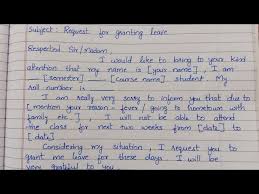 Subject: Request for granting leave
Respected Sir/Madam,
I would like to bring to your kind
attention that my name is [your name], I am
[semester] — [course name] student. My
roll number is
I am really very sorry to inform you that due to
[mention your reason - fever / going to hometown with
family etc.], I will not be able to attend
the class for next two weeks from [date] to
[date].
Considering my situation, I request you to
grant me leave for these days. I will be
very grateful to you.